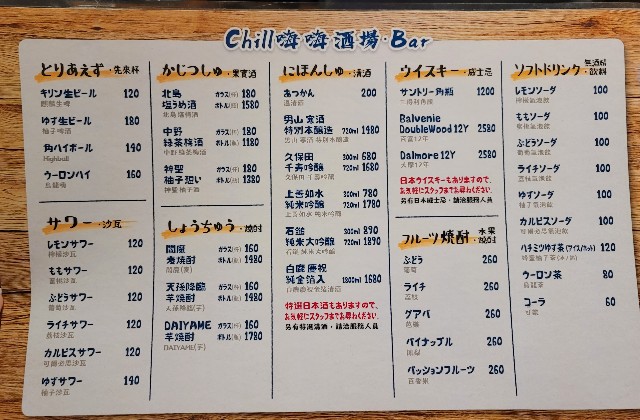 Chill嗨嗨酒場·Bar
とりあえず·先來杯
キリン生ビール 120
麒麟生啤
ゆず生ビール 180
柚子啤酒
角ハイボール 190
Highball
ウーロンハイ 160
烏龍嗨
サワー·沙瓦
レモンサワー 120
檸檬沙瓦
ももサワー 120
蜜桃沙瓦
ぶどうサワー 120
葡萄沙瓦
ライチサワー 120
荔枝沙瓦
カルピスサワー 120
可爾必思沙瓦
ゆずサワー 190
柚子沙瓦
かじつしゅ·果實酒
北島 ガラス(杯) 180
塩うめ酒 ボトル(瓶) 1580
中野 ガラス(杯) 180
緑茶梅酒 ボトル(瓶) 1180
中野 綠茶梅酒
神聖 ガラス(杯) 180
柚子憩い ボトル(瓶) 1380
神聖 柚子酒
しょうちゅう·燒酎
閻魔 ガラス(杯) 160
麦焼酎 ボトル(瓶) 1980
閻魔(麥)
天孫降臨 ガラス(杯) 160
芋焼酎 ボトル(瓶) 1980
天孫降臨(芋)
DAIYAME ガラス(杯) 160
芋焼酎 ボトル(瓶) 1780
DAIYAME(芋)
にほんしゅ·清酒
あつかん 200
溫清酒
男山 寒酒
特別本醸造 720ml 1980
男山 寒酒 特別本釀造
久保田 300ml 680
千寿吟醸 720ml 1680
久保田 千壽吟釀
上善如水 300ml 780
純米吟醸 720ml 1780
上善如水 純米吟釀
石鎚 300ml 890
純米大吟醸 720ml 1890
石鎚 純米大吟釀
白鹿 慶祝
純金箔入 1800ml 1680
特選日本酒もありますので、
お気軽にスタッフまでお尋ねください。
另有特選清酒,請洽服務人員
ウイスキー·威士忌
サントリー角瓶 1200
三得利角瓶
Balvenie
DoubleWood 12Y 2580
百富12年
Dalmore 12Y 2580
大摩12年
日本ウイスキーもありますので、
お気軽にスタッフまでお尋ねください。
另有日本威士忌,請洽服務人員
フルーツ焼酎·水果燒酎
ぶどう 260
葡萄
ライチ 260
荔枝
グアバ 260
芭樂
パイナップル 260
鳳梨
パッションフルーツ 260
百香果
ソフトドリンク·無酒精飲料
レモンソーダ 100
檸檬氣泡飲
ももソーダ 100
蜜桃氣泡飲
ぶどうソーダ 100
葡萄氣泡飲
ライチソーダ 100
荔枝氣泡飲
ゆずソーダ 100
柚子氣泡飲
カルピスソーダ 100
可爾必思氣泡飲
ハチミツゆず茶(アイス/ホット) 120
蜂蜜柚子茶(冰/熱)
ウーロン茶 80
烏龍茶
コーラ 60
可樂